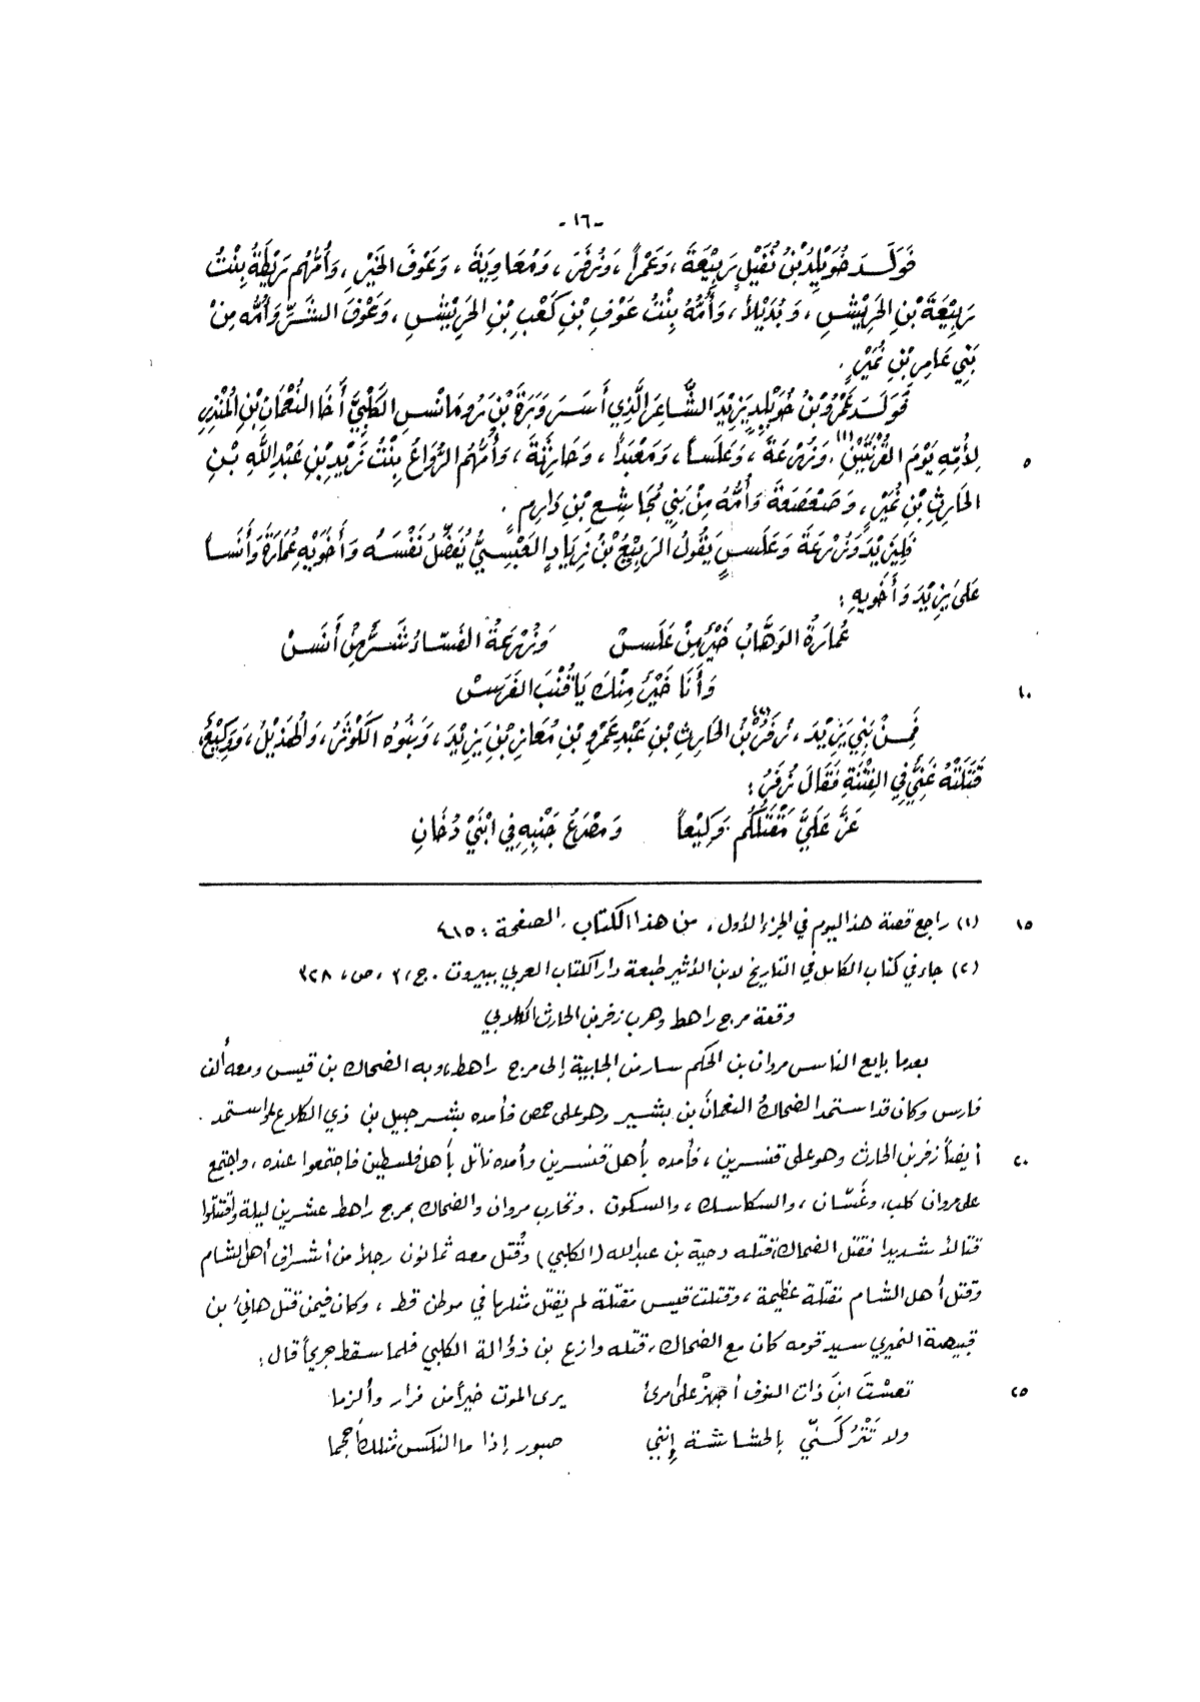 -١٦-
فَوَلَدَ خُوَيْلِدُ بْنُ نُفَيْلٍ رَبِيْعَةَ، وَعَمْراً، وَزُفَرَ، وَمُعَاوِيَةَ، وَعَوْفَ الخَيْرِ، وَأُمُّهُم رَيْطَةُ بِنْتُ
رَبِيْعَةَ بْنِ الحَرِيْشِ، وَبُدَيْلاً، وَأُمُّهُ بِنْتُ عَوْفِ بْنِ كَعْبِ بْنِ الحَرِيْشِ، وَعَوْفَ الشَّرِّ وَأُمُّهُ مِنْ
بَنِي عَامِرِ بْنِ نُمَيْرٍ.
فَوَلَدَ عَمْرُو بْنُ خُوَيْلِدٍ يَزِيْدَ الشَّاعِرَ الَّذِي أَسَرَ وَبَرَةَ بْنَ رُومَانْسِ الكَلْبِيَّ أَخَا النُّعْمَانِ بْنِ المُنْذِرِ
لِأُمِّهِ يَوْمَ القُرْنَتَيْنِ(١)، وَزُرْعَةَ، وَعَلَساً، وَمَعْبَداً، وَحَارِثَةَ، وَأُمُّهُم الرُّوَاعُ بِنْتُ زَيْدِ بْنِ عَبْدِ اللَّهِ بْنِ ٥
الحَارِثِ بْنِ نُمَيْرٍ، وَصَعْصَعَةَ وَأُمُّهُ مِنْ بَنِي مُجَاشِعِ بْنِ دَارِمٍ.
فَلِيَزِيْدَ وَزُرْعَةَ وَعَلَسٍ يَقُولُ الرَّبِيْعُ بْنُ زِيَادٍ العَبْسِيُّ يُفَضِّلُ نَفْسَهُ وَأَخَوَيْهِ عُمَارَةَ وَأَنَساً
عَلَى يَزِيْدَ وَأَخَوَيهِ:
عُمَارَةُ الوَهَّابُ خَيْرٌ مِنْ عَلَسْ وَزُرْعَةُ الفَسّاءُ شَرٌّ مِنْ أَنَسْ
وَأَنَا خَيْرٌ مِنْكَ يَا قُنْبَ الفَرَسْ ١٠
فَمِنْ بَنِي يَزِيْدَ، زُفَرُ(٢) بْنُ الحَارِثِ بْنِ عَبْدِ عَمْرِو بْنِ مُعَازِ بْنِ يَزِيْدَ، وَبَنُوهُ الكَوْثَرُ، وَالهُذَيْلُ، وَوَكِيْعٌ،
قَتَلَتْهُ غَنِيٌّ فِي الفِتْنَةِ فَقَالَ زُفَرُ:
عَزَّ عَلَيَّ مَقْتَلُكُم وَكِيْعاً وَمَصْرَعُ جَنْبِهِ فِي ابْنَيْ دُخَانِ
(١) راجع قصة هذا اليوم في الجزء الأول، من هذا الكتاب. الصفحة: ٤١٥ ١٥
(٢) جاء في كتاب الكامل في التاريخ لابن الأثير طبعة دار الكتاب العربي ببيروت. ج، ٣، ص، ٣٢٨
وقعة مرج راهط وهرب زفر بن الحارث الكلابي
بعدما بايع الناس مروان بن الحكم سار من الجابية إلى مرج راهط وبه الضحاك بن قيس ومعه ألف
فارس وكان قد استمد الضحاكُ النعمانَ بن بشير وهو على حمص فأمده بشرحبيل بن ذي الكلاع واستمد.
أيضاً زفر بن الحارث وهو على قنسرين، فأمده بأهل قنسرين وأمده ناتل بأهل فلسطين فاجتمعوا عنده، واجتمع ٢٠
على مروان كلب، وغَسّان، والسكاسك، والسكون. وتحارب مروان والضحاك بمرج راهط عشرين ليلة واقتتلوا
قتالاً شديدا فقتل الضحاك، قتله دحية بن عبدالله (الكلبي) وقُتل معه ثمانون رجلاً من أشراف أهل الشام
وقتل أهل الشام مقتلة عظيمة، وقتلت قيس مقتلة لم يقتل مثلها في موطن قط، وكان فيمن قتل هانئ بن
قبيصة النميري سيد قومه كان مع الضحاك، قتله وازع بن ذؤالة الكلبي فلما سقط جريحاً قال:
تعسْتَ ابنَ ذات النوف أجهزْ على امرئ يرى الموت خيراً من فرار وألزما ٢٥
ولا تَتْرُكَنّي بالحشاشة إنني صبور إذا ما النكس مثلك أحجما